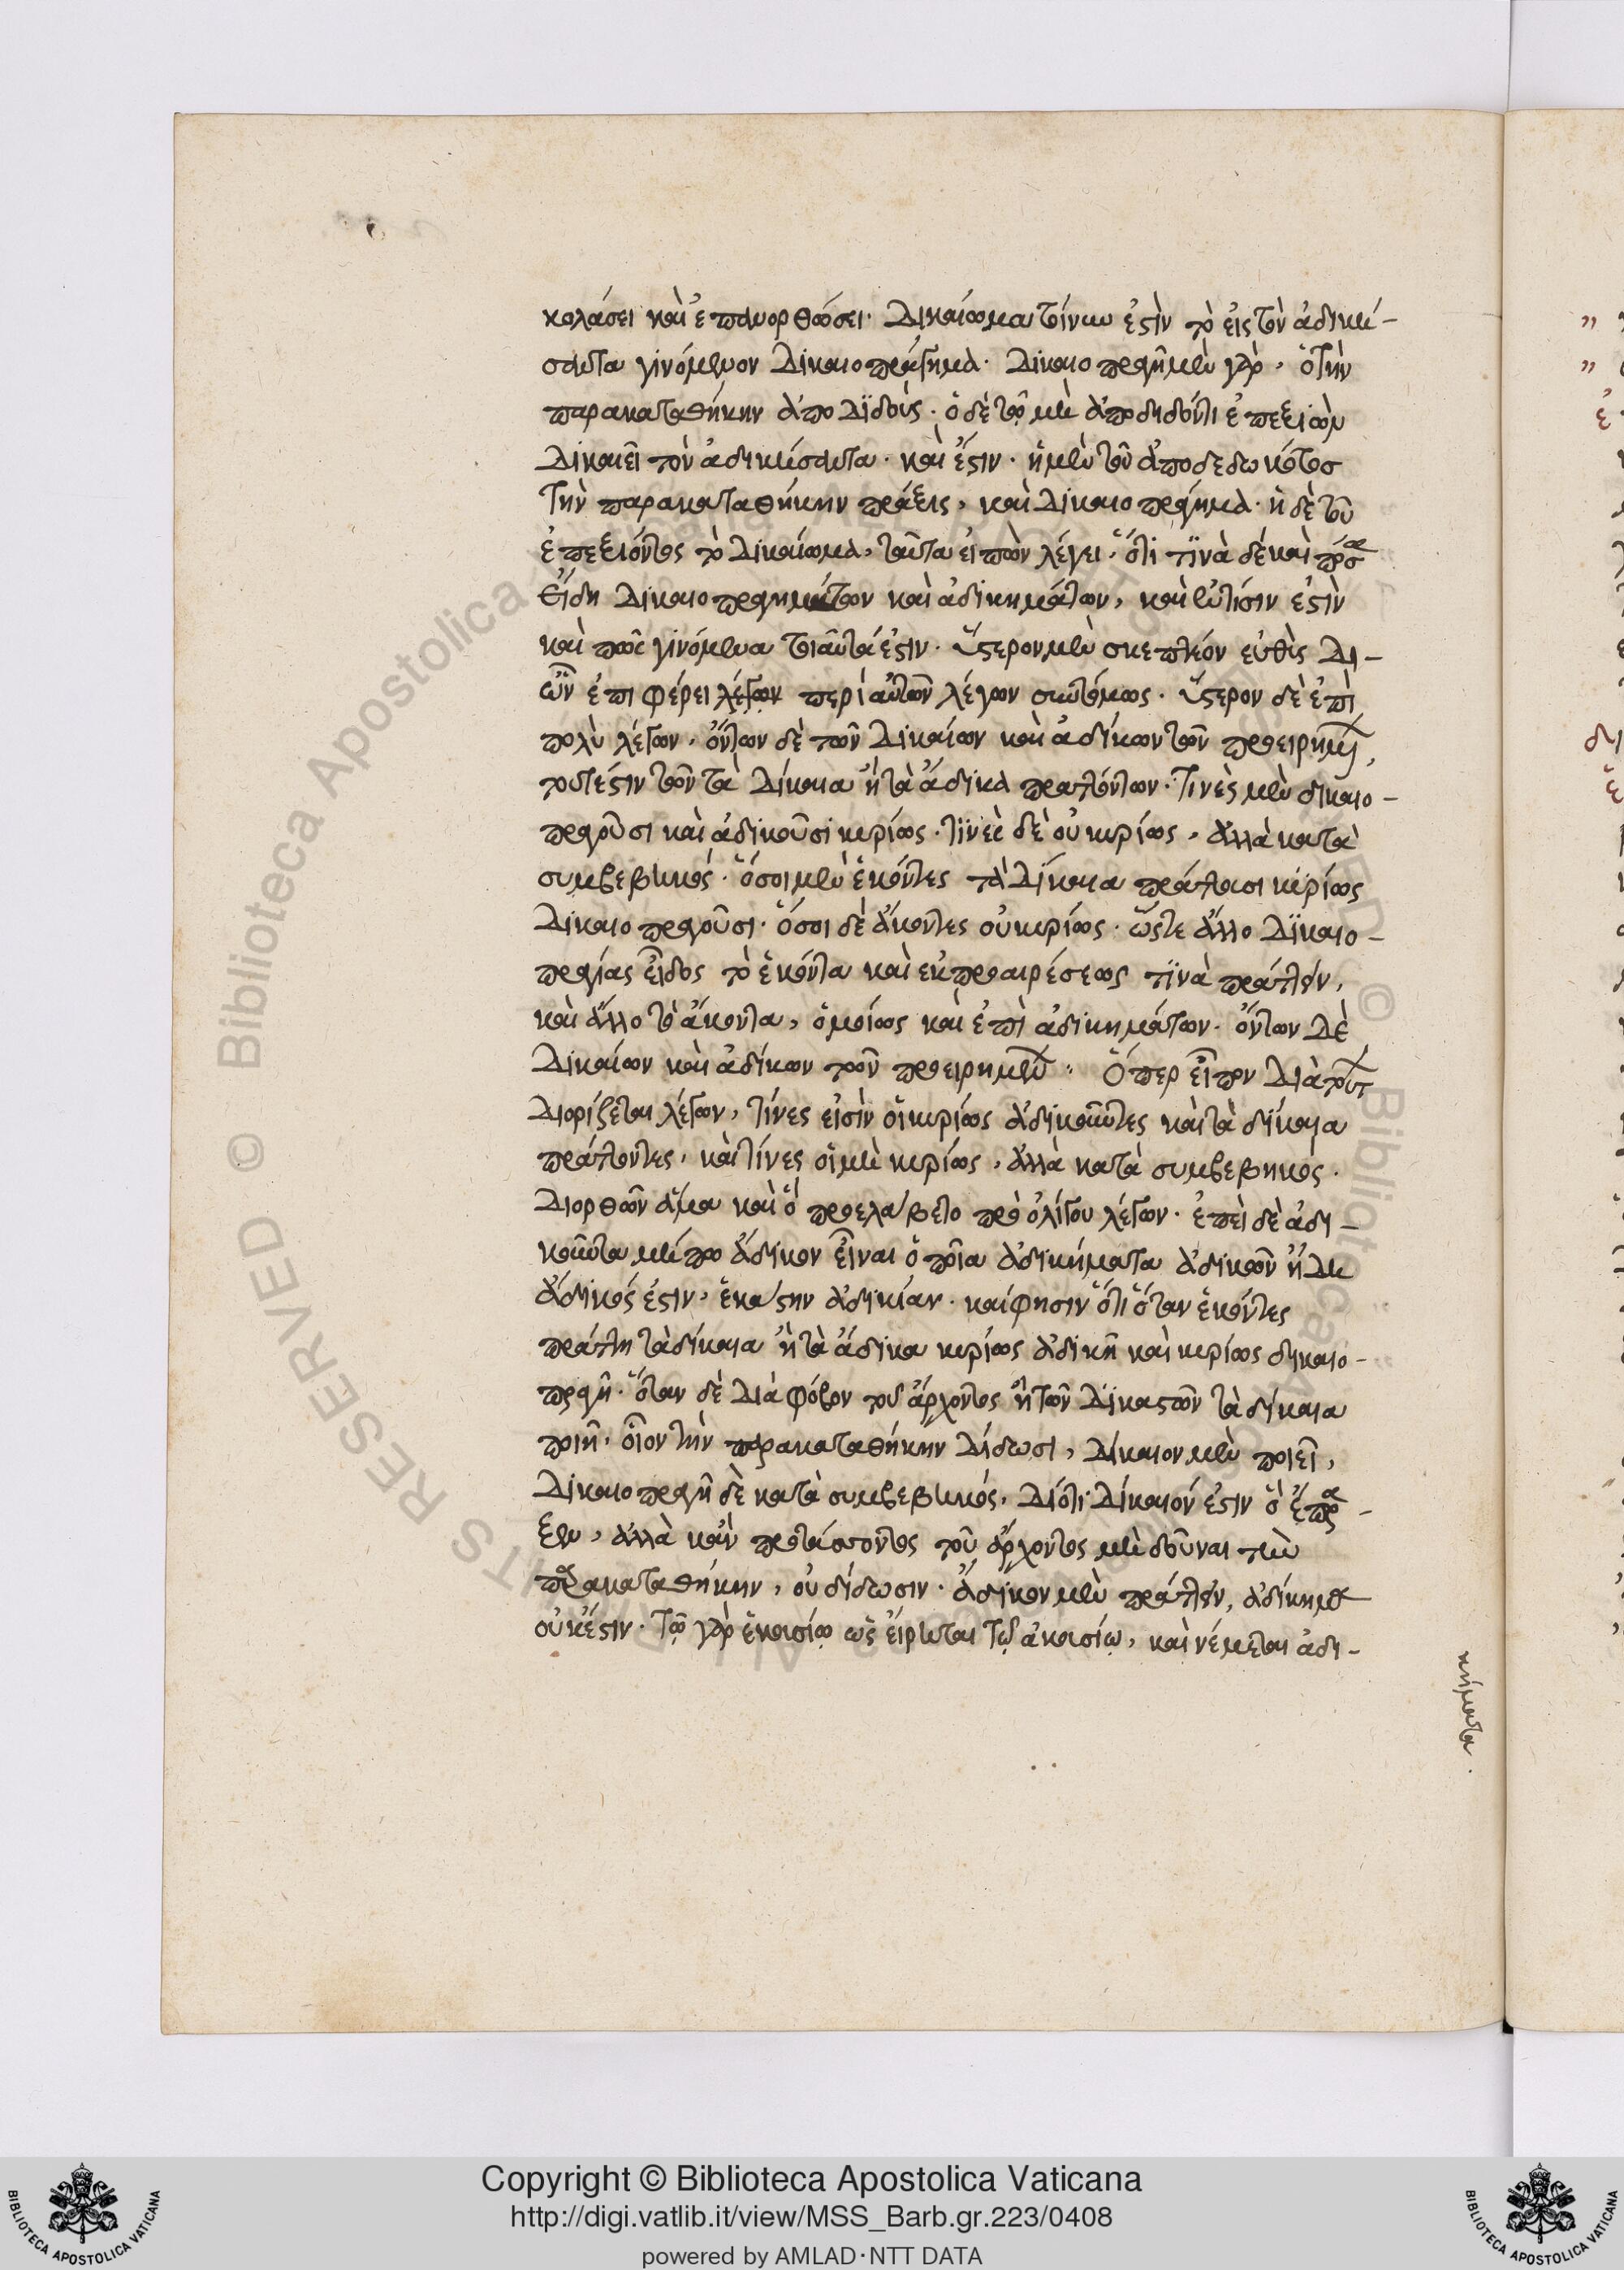 κολάσει καὶ ἐπανορθώσει· Δικαίωμα τοίνυν ἐστὶν τὸ εἰς τὸν ἀδική-
σαντα γινόμενον Δικαιοπράγημα· Δικαιοπραγεῖ μὲν γὰρ, ὁ τὴν
παρακαταθήκην ἀποδϊδοὺς· ὁ δὲ τῷ μὴ ἀποδιδόντι ἐπεξιὼν
Δικαιεῖ τὸν ἀδικήσαντα· καὶ ἔστιν· ἡ μὲν τοῦ ἀποδεδωκότος
Τὴν παρακαταθήκην πράξις, καὶ Δικαιοπράγημα· ἡ δὲ τοῦ
ἐπεξιόντος τὸ Δικαίωμα, ταῦτα εἰπὼν λέγει· ὅτι τϊνὰ δὲ καὶ πόσα
Εἴδη Δικαιοπραγημάτων καὶ ἀδικημάτων, καὶ ἐν τίσιν ἐστὶν
καὶ πῶς γινόμενα τοιαῦτά ἐστιν· ὕστερον μὲν σκεπτέον εὐθὺς Δι-
ὧν ἐπιφέρει λέγων περὶ αὐτῶν λέγων συντόμως· ὕστερον δὲ ἐπὶ
πολὺ λέγων· ὄντων δὲ τῶν Δικαίων καὶ ἀδίκων τῶν προειρημέ,
τουτέστιν τῶν τὰ Δίκαια ἢ τὰ ἄδικα πραττόντων· Τινὲς μὲν δικαιο-
πραγοῦσι καὶ ἀδικοῦσι κυρίως· τϊνὲς δὲ οὐ κυρίως, ἀλλὰ κατὰ
συμβεβηκός· ὅσοι μὲν ἑκόντες τὰ Δίκαια πράττουσι κυρίως
Δικαιοπραγοῦσι· ὅσοι δὲ ἄκοντες οὐ κυρίως· ὥστε ἄλλο Δϊκαιο-
πραγίας εἶδος τὸ ἑκόντα καὶ ἐκ προαιρέσεως τϊνὰ πράττειν,
καὶ ἄλλο τὸ ἄκοντα, ὁμοίως καὶ ἐπὶ ἀδικημάτων· ὄντων Δὲ
Δικαίων καὶ ἀδίκων τῶν προειρημέν· Ὅπερ εἶπον Διὰ τούτ
Διορίζεται λέγων, τίνες εἰσὶν οἱ κυρίως ἀδικοῦντες καὶ τὰ δίκαια
πράττοντες, καὶ τίνες οἱ μὴ κυρίως, ἀλλὰ κατὰ συμβεβηκός·
Διορθῶν ἅμα καὶ ὃ προελάβετο πρὸ ὀλίγου λέγων· ἐπεὶ δὲ ἀδι-
κοῦντα μήπω ἄδικον εἶναι ὁ ποῖα ἀδικήματα ἀδικῶν ἤδη
ἄδικός ἐστιν, ἑκάστην ἀδικίαν· καί φησιν ὅτι ὅταν ἑκόντες
πράττη τὰ δίκαια ἢ τὰ ἄδικα κυρίως ἀδικῆ καὶ κυρίως δικαιο-
πραγῆ· ὅταν δὲ Διὰ φόβον τοῦ ἄρχοντος ἢ τῶν Δϊκαστῶν τὰ δίκαια
ποιῆ· οἷον τὴν παρακαταθήκην Δίδωσι, Δίκαιον μὲν ποιεῖ,
Δικαιοπραγῆ δὲ κατὰ συμβεβηκός, Διότι Δίκαιόν ἐστιν ὃ ἔπρα-
ξεν, ἀλλὰ κἂν προτάσσοντος τοῦ ἄρχοντος μὴ δοῦναι τὴν
παρακαταθήκην, οὐ δίδωσιν· ἄδικον μὲν πράττειν, ἀδίκημα
οὐκ ἔστιν· Τῷ γὰρ ἑκουσίῳ ὡς εἴρηται Τῷ ἀκουσίῳ, καὶ νέμεται ἀδι-
κήματα.